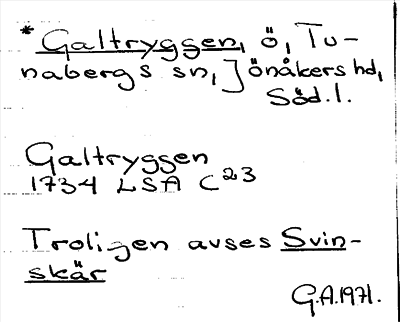 *Galtryggen, ö, Tu-
nabergs sn, Jönåkers hd,
Söd.l.
Galtryggen
1734 LSA C23
Troligen avses Svin-
skär
G.A. 1971.